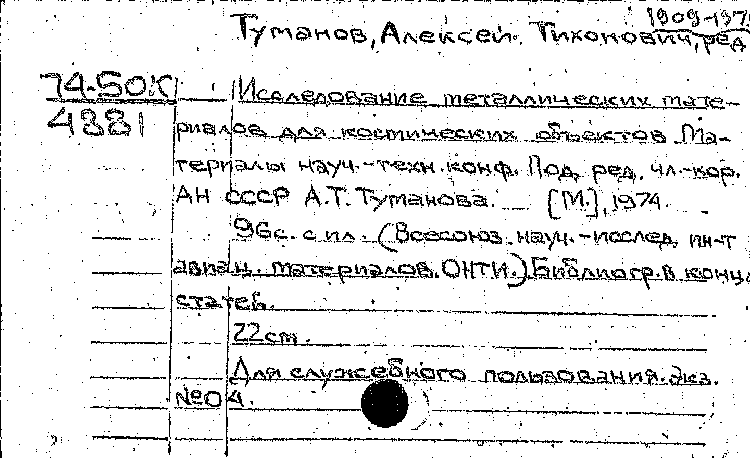 1909-197
Туманов, Алексей Тихонович, ред.
74-50К Исследование металлических мате-
4881 риалов для космических объектов. Ма-
териалы науч.-техн. конф. Под. ред. чл.-кор.
АН СССР А.Т. Туманова. [М.], 1974.
96с. с ил. (Всесоюз. науч.-исслед. ин-т
авиац. материалов. ОНТИ.) Библиогр. в конце
статей.
22 cm.
Для служебного пользования. Экз.
№04.